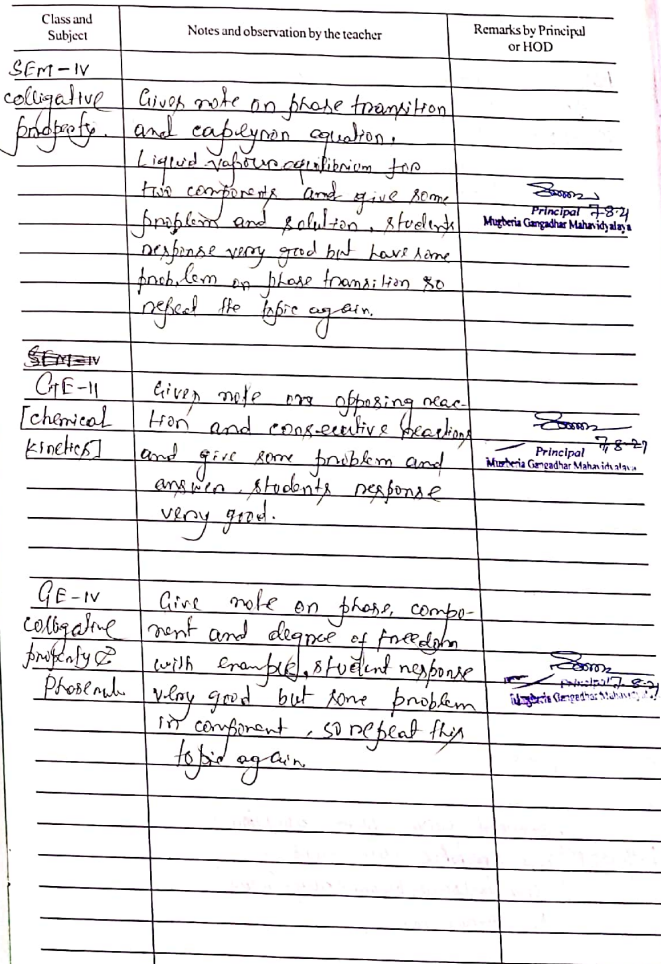 Class and
Subject
Notes and observation by the teacher
Remarks by Principal
or HOD
SEM-IV
colligative
property.
Given note on phase transition
and capleynon equation.
Liquid vapour equilibrium for
two components and give some
problem and solution, students
response very good but have some
problem on phase transition so
repeat the topic again.
Principal 7-8-21
Mugberia Gangadhar Mahavidyalaya
SEM-IV
GE-II
[chemical
kinetics]
Given note on opposing reac-
tion and consecutive reactions
and give some problem and
answer, students response
very good.
Principal 7.8-21
Mugberia Gangadhar Mahavidyalaya
GE-IV
colligative
property &
Phase rule
Give note on phase, compo-
nent and degree of freedom
with example, student response
very good but some problem
in component, so repeat this
topic again.
Principal 7-8-21
Mugberia Gangadhar Mahavidyalaya